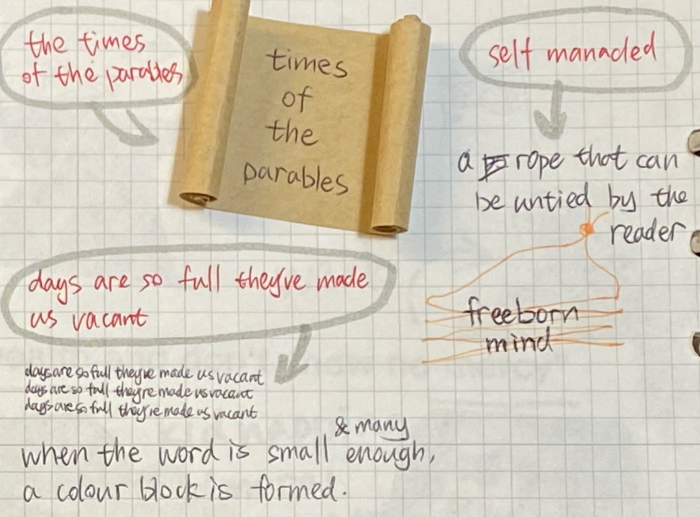 the times
of the parables
times
of
the
parables
self manacled
a rope that can
be untied by the
reader
freeborn
mind
days are so full they've made
us vacant
days are so full they've made us vacant
days are so full they're made us vacant
days are so full they're made us vacant
& many
when the word is small enough,
a colour block is formed.